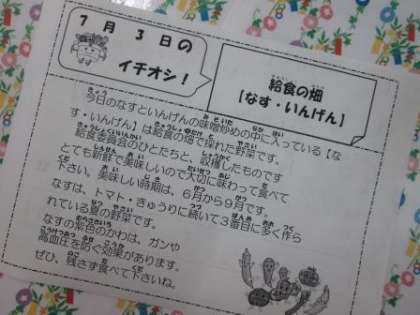 7月3日の
イチオシ！
給食の畑
【なす・いんげん】
今日のなすといんげんの味噌炒めの中に入っている【な
す・いんげん】は給食の畑で採れた野菜です。
給食委員会のひとたちと、収穫したものです
とても新鮮で美味しいので大切に味わって食べて
下さい。美味しい時期は、6月から9月です。
なすは、トマト・きゅうりに続いて3番目に多く作ら
れている夏の野菜です。
なすの紫色のかわは、ガンや
高血圧を防ぐ効果があります。
ぜひ、残さず食べて下さいね。